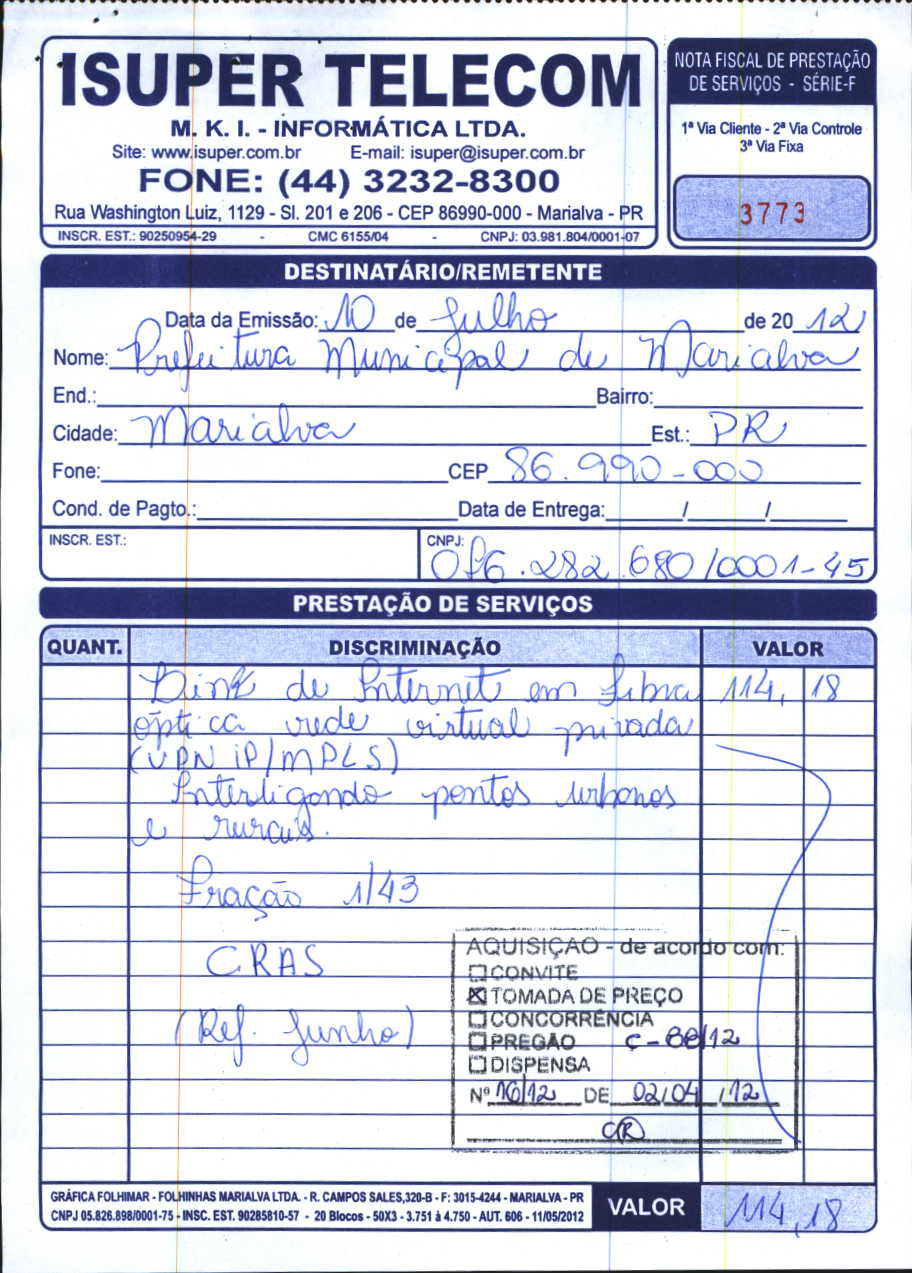 ISUPER TELECOM
M. K. I. - INFORMÁTICA LTDA.
Site: www.isuper.com.br E-mail: isuper@isuper.com.br
FONE: (44) 3232-8300
Rua Washington Luiz, 1129 - Sl. 201 e 206 - CEP 86990-000 - Marialva - PR
INSCR. EST.: 90250954-29 - CMC 6155/04 - CNPJ: 03.981.804/0001-07
NOTA FISCAL DE PRESTAÇÃO
DE SERVIÇOS - SÉRIE-F
1ª Via Cliente - 2ª Via Controle
3ª Via Fixa
3773
DESTINATÁRIO/REMETENTE
Data da Emissão: 10 de Julho de 20 12
Nome: Prefeitura Municipal de Marialva
End.: Bairro:
Cidade: Marialva Est.: PR
Fone: CEP 86.990-000
Cond. de Pagto.: Data de Entrega: / /
INSCR. EST.: CNPJ: .282.680/0001-45
PRESTAÇÃO DE SERVIÇOS
QUANT. DISCRIMINAÇÃO VALOR
Link de Internet em fibra 114, 18
óptica rede virtual privada
(VPN IP/MPLS)
Interligando pontos urbanos
e rurais.
Fração 1/43
CRAS
(Ref. Junho)
AQUISIÇÃO - de acordo com:
CONVITE
TOMADA DE PREÇO
CONCORRÊNCIA
PREGÃO C-88/12
DISPENSA
Nº 16/12 DE 02/04/12
CR
GRÁFICA FOLHIMAR - FOLHINHAS MARIALVA LTDA. - R. CAMPOS SALES,320-B - F: 3015-4244 - MARIALVA - PR
CNPJ 05.826.898/0001-75 - INSC. EST. 90285810-57 - 20 Blocos - 50X3 - 3.751 à 4.750 - AUT. 606 - 11/05/2012
VALOR 114,18